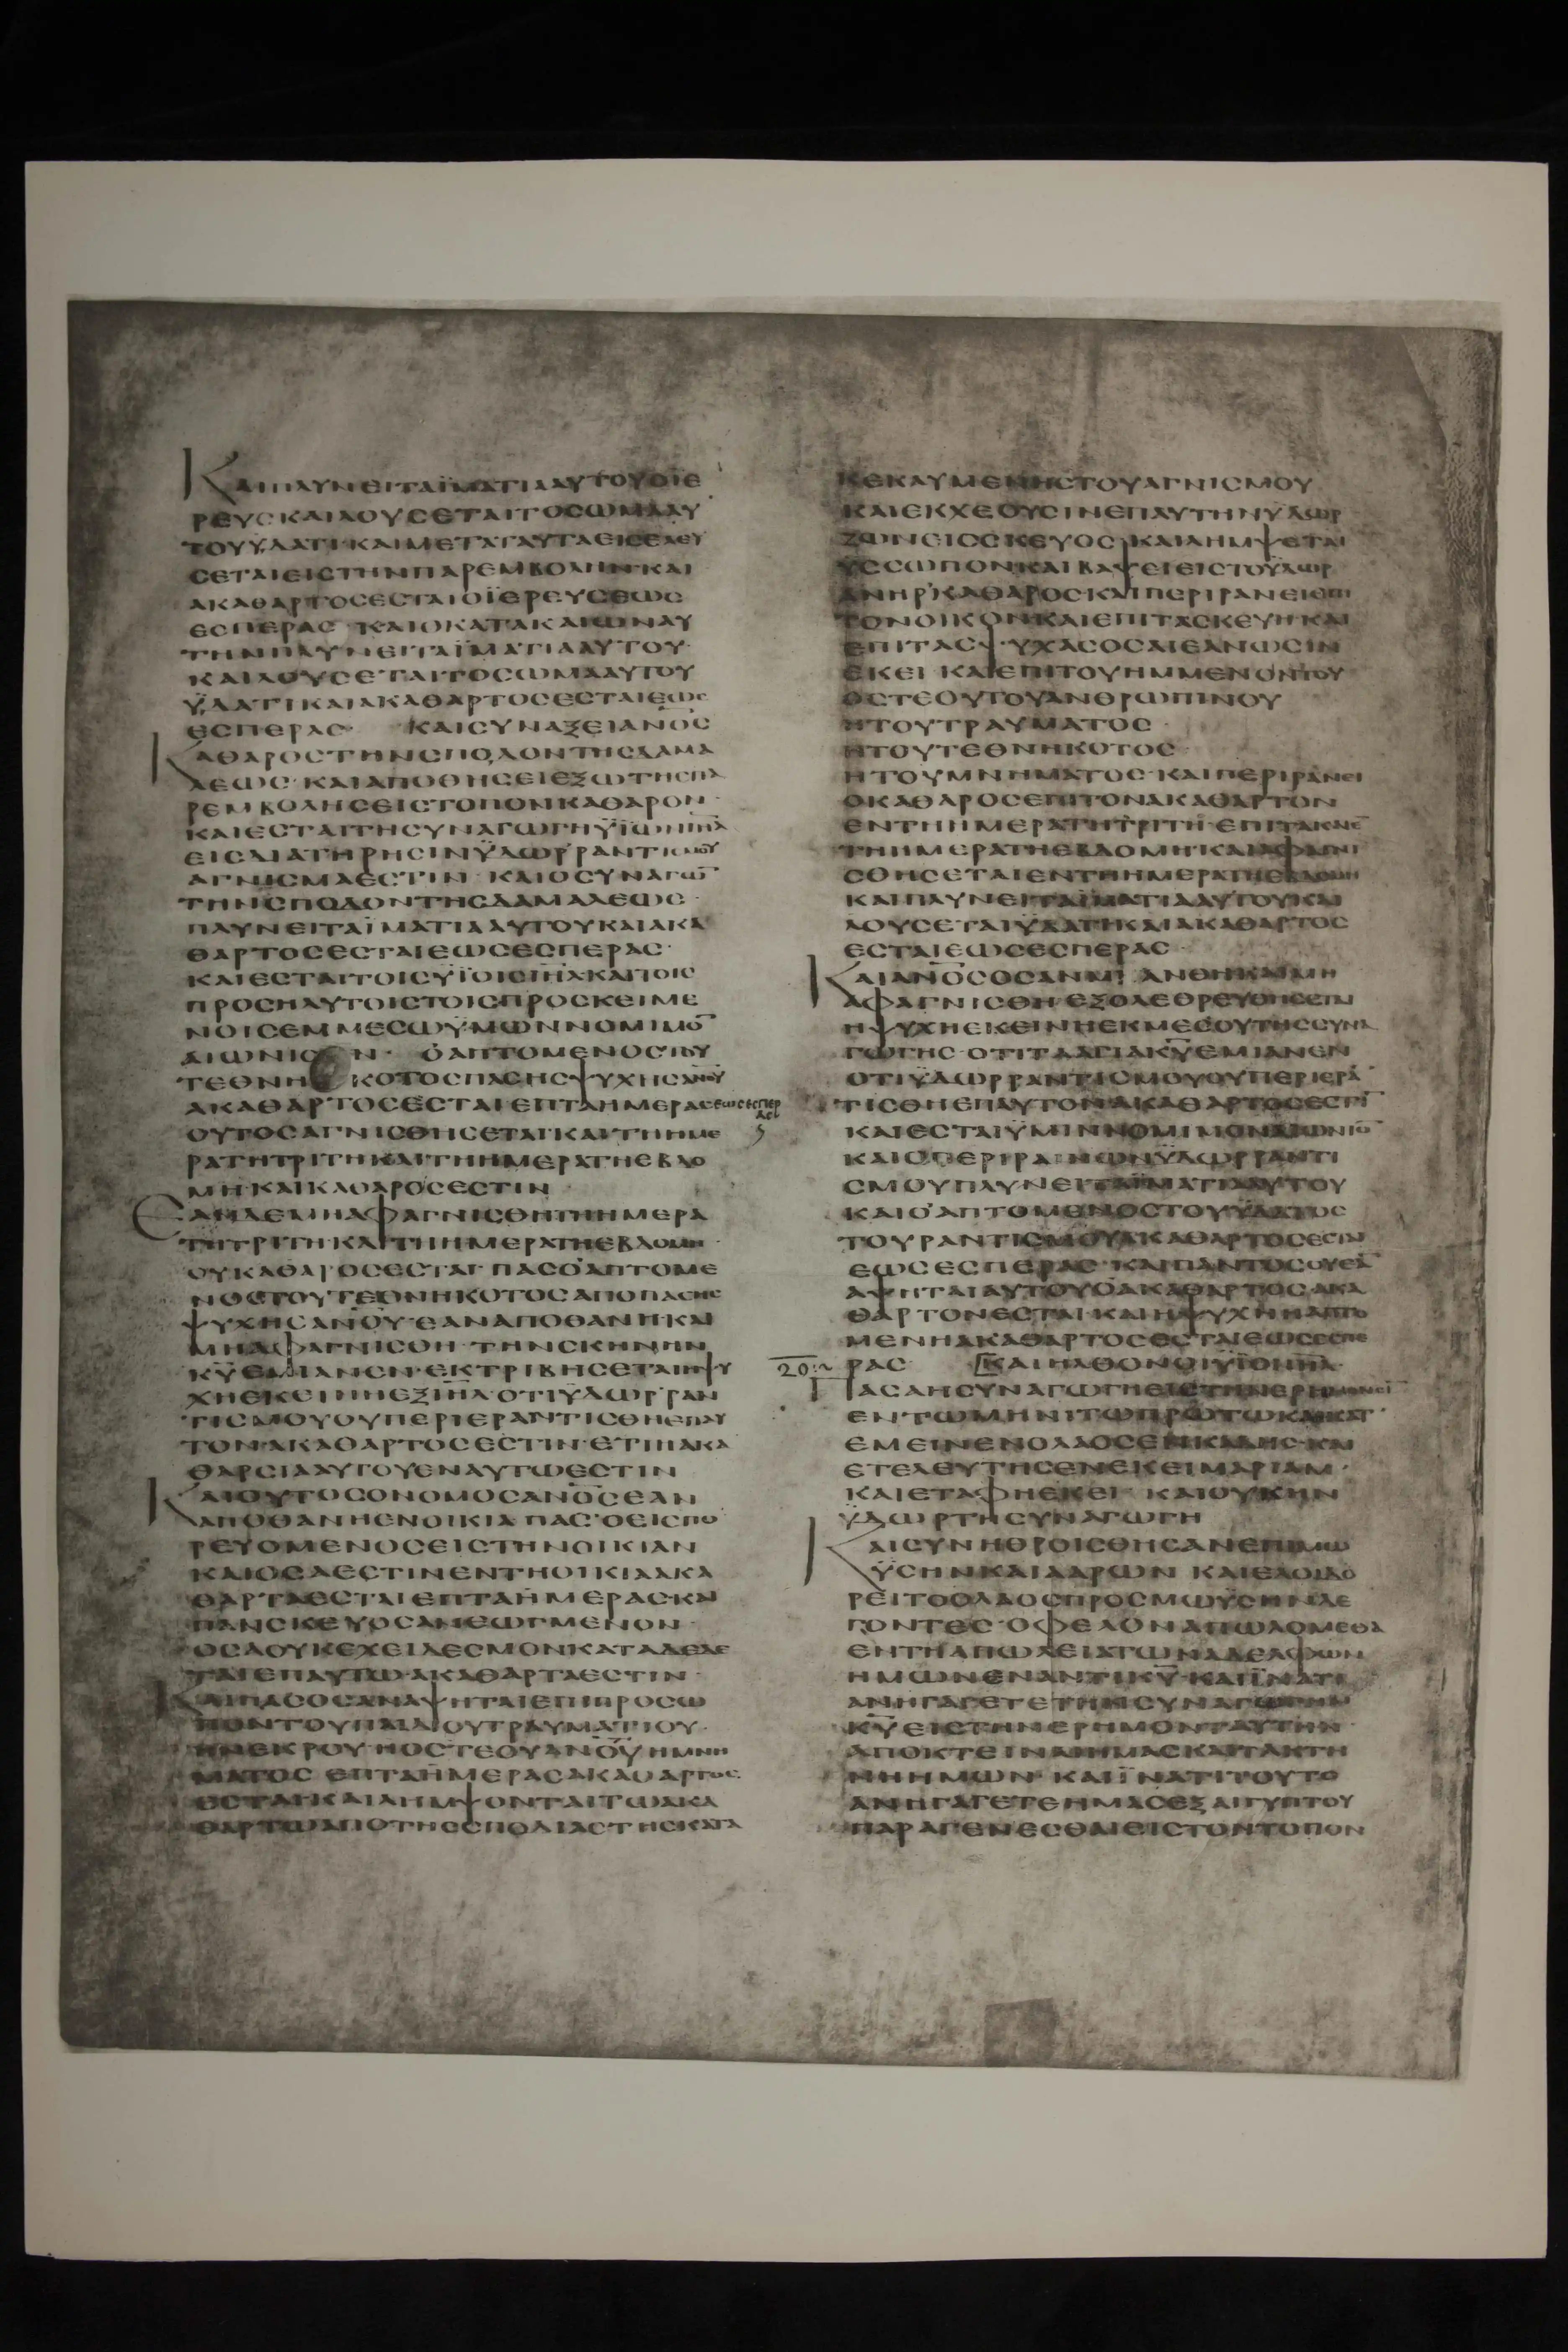 ΚΑΙΠΛΥΝΕΙΤΑΪΜΑΤΙΑΑΥΤΟΥΟΪΕ
ΡΕΥΣΚΑΙΛΟΥΣΕΤΑΙΤΟΣΩΜΑΑΥ
ΤΟΥΫΔΑΤΙ·ΚΑΙΜΕΤΑΤΑΥΤΑΕΙΣΕΛΕΥ
ΣΕΤΑΙΕΙΣΤΗΝΠΑΡΕΜΒΟΛΗΝ·ΚΑΙ
ΑΚΑΘΑΡΤΟΣΕΣΤΑΙΟΪΕΡΕΥΣΕΩΣ
ΕΣΠΕΡΑΣ· ΚΑΙΟΚΑΤΑΚΑΙΩΝΑΥ
ΤΗΝΠΛΥΝΕΙΤΑΪΜΑΤΙΑΑΥΤΟΥ·
ΚΑΙΛΟΥΣΕΤΑΙΤΟΣΩΜΑΑΥΤΟΥ
ΫΔΑΤΙΚΑΙΑΚΑΘΑΡΤΟΣΕΣΤΑΙΕΩΣ
ΕΣΠΕΡΑΣ· ΚΑΙΣΥΝΑΞΕΙΑΝΟΣ
ΚΑΘΑΡΟΣΤΗΝΣΠΟΔΟΝΤΗΣΔΑΜΑ
ΛΕΩΣ·ΚΑΙΑΠΟΘΗΣΕΙΕΞΩΤΗΣΠΑ
ΡΕΜΒΟΛΗΣΕΙΣΤΟΠΟΝΚΑΘΑΡΟΝ·
ΚΑΙΕΣΤΑΙΤΗΣΥΝΑΓΩΓΗΫΪΩΝΙΗΛ
ΕΙΣΔΙΑΤΗΡΗΣΙΝΫΔΩΡΡΑΝΤΙΣΜΟΥ
ΑΓΝΙΣΜΑΕΣΤΙΝ· ΚΑΙΟΣΥΝΑΓΩ̅
ΤΗΝΣΠΟΔΟΝΤΗΣΔΑΜΑΛΕΩΣ·
ΠΛΥΝΕΙΤΑΪΜΑΤΙΑΑΥΤΟΥΚΑΙΑΚΑ
ΘΑΡΤΟΣΕΣΤΑΙΕΩΣΕΣΠΕΡΑΣ·
ΚΑΙΕΣΤΑΙΤΟΙΣΫΪΟΙΣΙΗΛΚΑΙΤΟΙΣ
ΠΡΟΣΗΛΥΤΟΙΣΤΟΙΣΠΡΟΣΚΕΙΜΕ
ΝΟΙΣΕΜΜΕΣΩΫΜΩΝΝΟΜΙΜΟ̅
ΑΙΩΝΙΟΝ· ΟΑΠΤΟΜΕΝΟΣΤΟΥ
ΤΕΘΝΗΚΟΤΟΣΠΑΣΗΣΨΥΧΗΣΑΝΟΥ
ΑΚΑΘΑΡΤΟΣΕΣΤΑΙΕΠΤΑΗΜΕΡΑΣΕΩΣΕΣΠΕΡ
ΑΣ
ΟΥΤΟΣΑΓΝΙΣΘΗΣΕΤΑΙ·ΚΑΙΤΗΗΜΕ
ΡΑΤΗΤΡΙΤΗΚΑΙΤΗΗΜΕΡΑΤΗΕΒΔΟ
ΜΗ·ΚΑΙΚΑΘΑΡΟΣΕΣΤΙΝ·
ΕΑΝΔΕΜΗΑΦΑΓΝΙΣΘΗΤΗΗΜΕΡΑ
ΤΗΤΡΙΤΗ·ΚΑΙΤΗΗΜΕΡΑΤΗΕΒΔΟΜΗ·
ΟΥΚΑΘΑΡΟΣΕΣΤΑΙ· ΠΑΣΟΑΠΤΟΜΕ
ΝΟΣΤΟΥΤΕΘΝΗΚΟΤΟΣΑΠΟΠΑΣΗΣ
ΨΥΧΗΣΑΝΟΥ·ΕΑΝΑΠΟΘΑΝΗΚΑΙ
ΜΗΑΦΑΓΝΙΣΘΗ·ΤΗΝΣΚΗΝΗΝ
ΚΥΕΜΙΑΝΕΝ·ΕΚΤΡΙΒΗΣΕΤΑΙΗΨΥ
ΧΗΕΚΕΙΝΗΕΞΙΗΛ·ΟΤΙΫΔΩΡΡΑΝ
ΤΙΣΜΟΥΟΥΠΕΡΙΕΡΑΝΤΙΣΘΗΕΠΑΥ
ΤΟΝ·ΑΚΑΘΑΡΤΟΣΕΣΤΙΝ·ΕΤΙΗΑΚΑ
ΘΑΡΣΙΑΑΥΤΟΥΕΝΑΥΤΩΕΣΤΙΝ
ΚΑΙΟΥΤΟΣΟΝΟΜΟΣΑΝΟΣΕΑΝ
ΑΠΟΘΑΝΗΕΝΟΙΚΙΑ· ΠΑΣΟΕΙΣΠΟ
ΡΕΥΟΜΕΝΟΣΕΙΣΤΗΝΟΙΚΙΑΝ
ΚΑΙΟΣΑΕΣΤΙΝΕΝΤΗΟΙΚΙΑΑΚΑ
ΘΑΡΤΑΕΣΤΑΙΕΠΤΑΗΜΕΡΑΣ·ΚΑΙ
ΠΑΝΣΚΕΥΟΣΑΝΕΩΓΜΕΝΟΝ·
ΟΣΑΟΥΚΕΧΕΙΔΕΣΜΟΝΚΑΤΑΔΕΔΕ
ΤΑΙΕΠΑΥΤΩ·ΑΚΑΘΑΡΤΑΕΣΤΙΝ·
ΚΑΙΠΑΣΟΣΑΝΑΨΗΤΑΙΕΠΙΠΡΟΣΩ
ΠΟΝΤΟΥΠΑΙΔΙΟΥΤΡΑΥΜΑΤΙΟΥ·
ΗΝΕΚΡΟΥ·ΗΟΣΤΕΟΥΑΝΟΥΗΜΝΗ
ΜΑΤΟΣ· ΕΠΤΑΗΜΕΡΑΣΑΚΑΘΑΡΤΟΣ
ΕΣΤΑΙ·ΚΑΙΛΗΜΨΟΝΤΑΙΤΩΑΚΑ
ΘΑΡΤΩΑΠΟΤΗΣΣΠΟΔΙΑΣΤΗΣΚΑΤΑ
ΚΕΚΑΥΜΕΝΗΣΤΟΥΑΓΝΙΣΜΟΥ
ΚΑΙΕΚΧΕΟΥΣΙΝΕΠΑΥΤΗΝΫΔΩΡ
ΖΩΝΕΙΣΣΚΕΥΟΣ·ΚΑΙΛΗΜΨΕΤΑΙ
ΥΣΣΩΠΟΝΚΑΙΒΑΨΕΙΕΙΣΤΟΫΔΩΡ
ΑΝΗΡΚΑΘΑΡΟΣ·ΚΑΙΠΕΡΙΡΑΝΕΙΕΠΙ
ΤΟΝΟΙΚΟΝΚΑΙΕΠΙΤΑΣΚΕΥΗΚΑΙ
ΕΠΙΤΑΣΨΥΧΑΣΟΣΑΙΕΑΝΩΣΙΝ
ΕΚΕΙ· ΚΑΙΕΠΙΤΟΥΗΜΜΕΝΟΝΤΟΥ
ΟΣΤΕΟΥΤΟΥΑΝΘΡΩΠΙΝΟΥ
ΗΤΟΥΤΡΑΥΜΑΤΟΣ·
ΗΤΟΥΤΕΘΝΗΚΟΤΟΣ·
ΗΤΟΥΜΝΗΜΑΤΟΣ·ΚΑΙΠΕΡΙΡΑΝΕΙ
ΟΚΑΘΑΡΟΣΕΠΙΤΟΝΑΚΑΘΑΡΤΟΝ
ΕΝΤΗΗΜΕΡΑΤΗΤΡΙΤΗ·
ΤΗΗΜΕΡΑΤΗΕΒΔΟΜΗ·ΚΑΙΑΦΑΓΝΙ
ΣΘΗΣΕΤΑΙΕΝΤΗΗΜΕΡΑΤΗΕΒΔΟΜΗ
ΚΑΙΠΛΥΝΕΙΤΑΪΜΑΤΙΑΑΥΤΟΥΚΑΙ
ΛΟΥΣΕΤΑΙΫΔΑΤΙΚΑΙΑΚΑΘΑΡΤΟΣ
ΕΣΤΑΙΕΩΣΕΣΠΕΡΑΣ·
ΚΑΙΑΝΟΣΟΣΑΝΜΙΑΝΘΗΚΑΙΜΗ
ΑΦΑΓΝΙΣΘΗ·ΕΞΟΛΕΘΡΕΥΘΗΣΕΤΑΙ
ΗΨΥΧΗΕΚΕΙΝΗΕΚΜΕΣΟΥΤΗΣΣΥΝΑ
ΓΩΓΗΣ·ΟΤΙΤΑΑΓΙΑΚΥΕΜΙΑΝΕΝ
ΟΤΙΫΔΩΡΡΑΝΤΙΣΜΟΥΟΥΠΕΡΙΕΡΑ̅
ΤΙΣΘΗΕΠΑΥΤΟΝ·ΑΚΑΘΑΡΤΟΣΕΣΤΙ̅
ΚΑΙΕΣΤΑΙΫΜΙΝΝΟΜΙΜΟΝΑΙΩΝΙΟ̅
ΚΑΙΟΠΕΡΙΡΑΙΝΩΝΫΔΩΡΡΑΝΤΙ
ΣΜΟΥΠΛΥΝΕΙΤΑΪΜΑΤΙΑΑΥΤΟΥ
ΚΑΙΟΑΠΤΟΜΕΝΟΣΤΟΥΫΔΑΤΟΣ
ΤΟΥΡΑΝΤΙΣΜΟΥΑΚΑΘΑΡΤΟΣΕΣΤΑΙ
ΕΩΣΕΣΠΕΡΑΣ· ΚΑΙΠΑΝΤΟΣΟΥΕΑ̅
ΑΨΗΤΑΙΑΥΤΟΥΟΑΚΑΘΑΡΤΟΣΑΚΑ
ΘΑΡΤΟΝΕΣΤΑΙ·ΚΑΙΗΨΥΧΗΗΑΠΤΟ
ΜΕΝΗΑΚΑΘΑΡΤΟΣΕΣΤΑΙΕΩΣΕΣΠΕ
20 ΡΑΣ· ΚΑΙΗΛΘΟΝΟΙΫΪΟΙΙΗΛ·
ΠΑΣΑΗΣΥΝΑΓΩΓΗΕΙΣΤΗΝΕΡΗΜΟΝΣΙ̅
ΕΝΤΩΜΗΝΙΤΩΠΡΩΤΩΚΑΙΚΑΤ
ΕΜΕΙΝΕΝΟΛΑΟΣΕΝΚΑΔΗΣ·ΚΑΙ
ΕΤΕΛΕΥΤΗΣΕΝΕΚΕΙΜΑΡΙΑΜ·
ΚΑΙΕΤΑΦΗΕΚΕΙ· ΚΑΙΟΥΚΗΝ
ΫΔΩΡΤΗΣΥΝΑΓΩΓΗ
ΚΑΙΣΥΝΗΘΡΟΙΣΘΗΣΑΝΕΠΙΜΩ
ΫΣΗΝΚΑΙΑΑΡΩΝ· ΚΑΙΕΛΟΙΔΟ
ΡΕΙΤΟΟΛΑΟΣΠΡΟΣΜΩΫΣΗΝΛΕ
ΓΟΝΤΕΣ·ΟΦΕΛΟΝΑΠΩΛΟΜΕΘΑ
ΕΝΤΗΑΠΩΛΕΙΑΤΩΝΑΔΕΛΦΩΝ
ΗΜΩΝΕΝΑΝΤΙΚΥ·ΚΑΙΪΝΑΤΙ
ΑΝΗΓΑΓΕΤΕΤΗΝΣΥΝΑΓΩΓΗΝ
ΚΥΕΙΣΤΗΝΕΡΗΜΟΝΤΑΥΤΗΝ·
ΑΠΟΚΤΕΙΝΑΙΗΜΑΣΚΑΙΤΑΚΤΗ
ΝΗΗΜΩΝ· ΚΑΙΪΝΑΤΙΤΟΥΤΟ
ΑΝΗΓΑΓΕΤΕΗΜΑΣΕΞΑΙΓΥΠΤΟΥ
ΠΑΡΑΓΕΝΕΣΘΑΙΕΙΣΤΟΝΤΟΠΟΝ